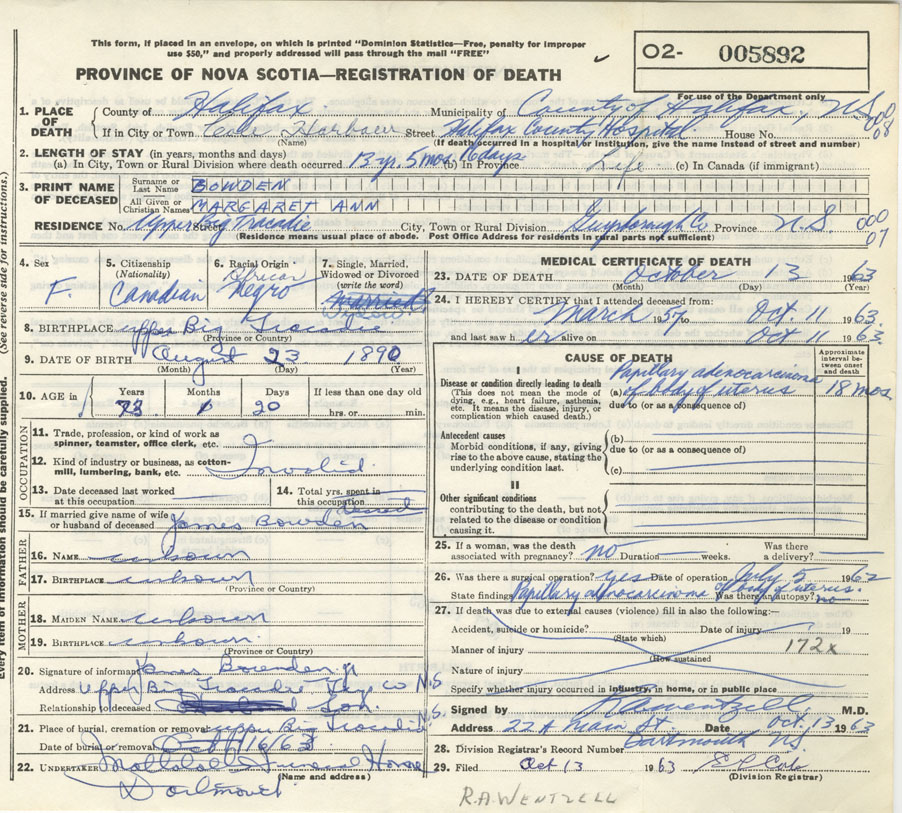 This form, if placed in an envelope, on which is printed "Dominion Statistics—Free, penalty for improper
use $50," and properly addressed will pass through the mail "FREE"
PROVINCE OF NOVA SCOTIA—REGISTRATION OF DEATH
O2- 005892
For use of the Department only
1. PLACE OF DEATH County of Halifax Municipality of County of Halifax, N.S.
If in City or Town Cole Harbour Street Halifax County Hospital House No.
(Name) (If death occurred in a hospital or institution, give the name instead of street and number)
000
08
2. LENGTH OF STAY (in years, months and days)
(a) In City, Town or Rural Division where death occurred 13 yr. 5 mos. 16 days (b) In Province Life (c) In Canada (if immigrant)
3. PRINT NAME OF DECEASED Surname or Last Name BOWDEN
All Given or Christian Names MARGARET ANN
RESIDENCE No. Upper Big Tracadie Street City, Town or Rural Division Guysborough Co Province N.S.
(Residence means usual place of abode. Post Office Address for residents in rural parts not sufficient)
000
07
4. Sex F.
5. Citizenship (Nationality) Canadian
6. Racial Origin African Negro
7. Single, Married, Widowed or Divorced (write the word) Married? Widow
8. BIRTHPLACE Upper Big Tracadie
(Province or Country)
9. DATE OF BIRTH August 23 1890
(Month) (Day) (Year)
10. AGE in Years 73 Months 1 Days 20 If less than one day old hrs. or min.
OCCUPATION
11. Trade, profession, or kind of work as spinner, teamster, office clerk, etc.
12. Kind of industry or business, as cotton-mill, lumbering, bank, etc. Invalid
13. Date deceased last worked at this occupation
14. Total yrs. spent in this occupation
15. If married give name of wife or husband of deceased James Bowden
FATHER
16. NAME unknown
17. BIRTHPLACE unknown
(Province or Country)
MOTHER
18. MAIDEN NAME unknown
19. BIRTHPLACE unknown
(Province or Country)
20. Signature of informant James Bowden Jr
Address Upper Big Tracadie Guy. Co N.S.
Relationship to deceased Son
21. Place of burial, cremation or removal Upper Big Tracadie N.S.
Date of burial or removal Oct 16/63
22. UNDERTAKER Funeral Home
(Name and address)
Dartmouth
Every item of information should be carefully supplied. (See reverse side for instructions.)
MEDICAL CERTIFICATE OF DEATH
23. DATE OF DEATH October 13 1963
(Month) (Day) (Year)
24. I HEREBY CERTIFY that I attended deceased from:
March 1957 to Oct 11 1963.
and last saw her alive on Oct 11 1963.
CAUSE OF DEATH
Approximate interval between onset and death
Disease or condition directly leading to death
(This does not mean the mode of dying, e.g., heart failure, asthenia, etc. It means the disease, injury, or complication which caused death.)
(a) Papillary adenocarcinoma of body of uterus 18 mos
due to (or as a consequence of)
Antecedent causes
Morbid conditions, if any, giving rise to the above cause, stating the underlying condition last.
(b)
due to (or as a consequence of)
(c)
II
Other significant conditions contributing to the death, but not related to the disease or condition causing it.
25. If a woman, was the death associated with pregnancy? no Duration weeks. Was there a delivery?
26. Was there a surgical operation? yes Date of operation July 5 1962
State findings Papillary adenocarcinoma of body of uterus. Was there an autopsy? no
27. If death was due to external causes (violence) fill in also the following:—
Accident, suicide or homicide? Date of injury 19
(State which)
Manner of injury 172x
(How sustained
Nature of injury
Specify whether injury occurred in industry, in home, or in public place
Signed by RAWentzell M.D.
Address 22A Main St Date Oct. 13 1963
Dartmouth N.S.
28. Division Registrar's Record Number
29. Filed Oct 13 1963
(Division Registrar)
R.A. WENTZELL